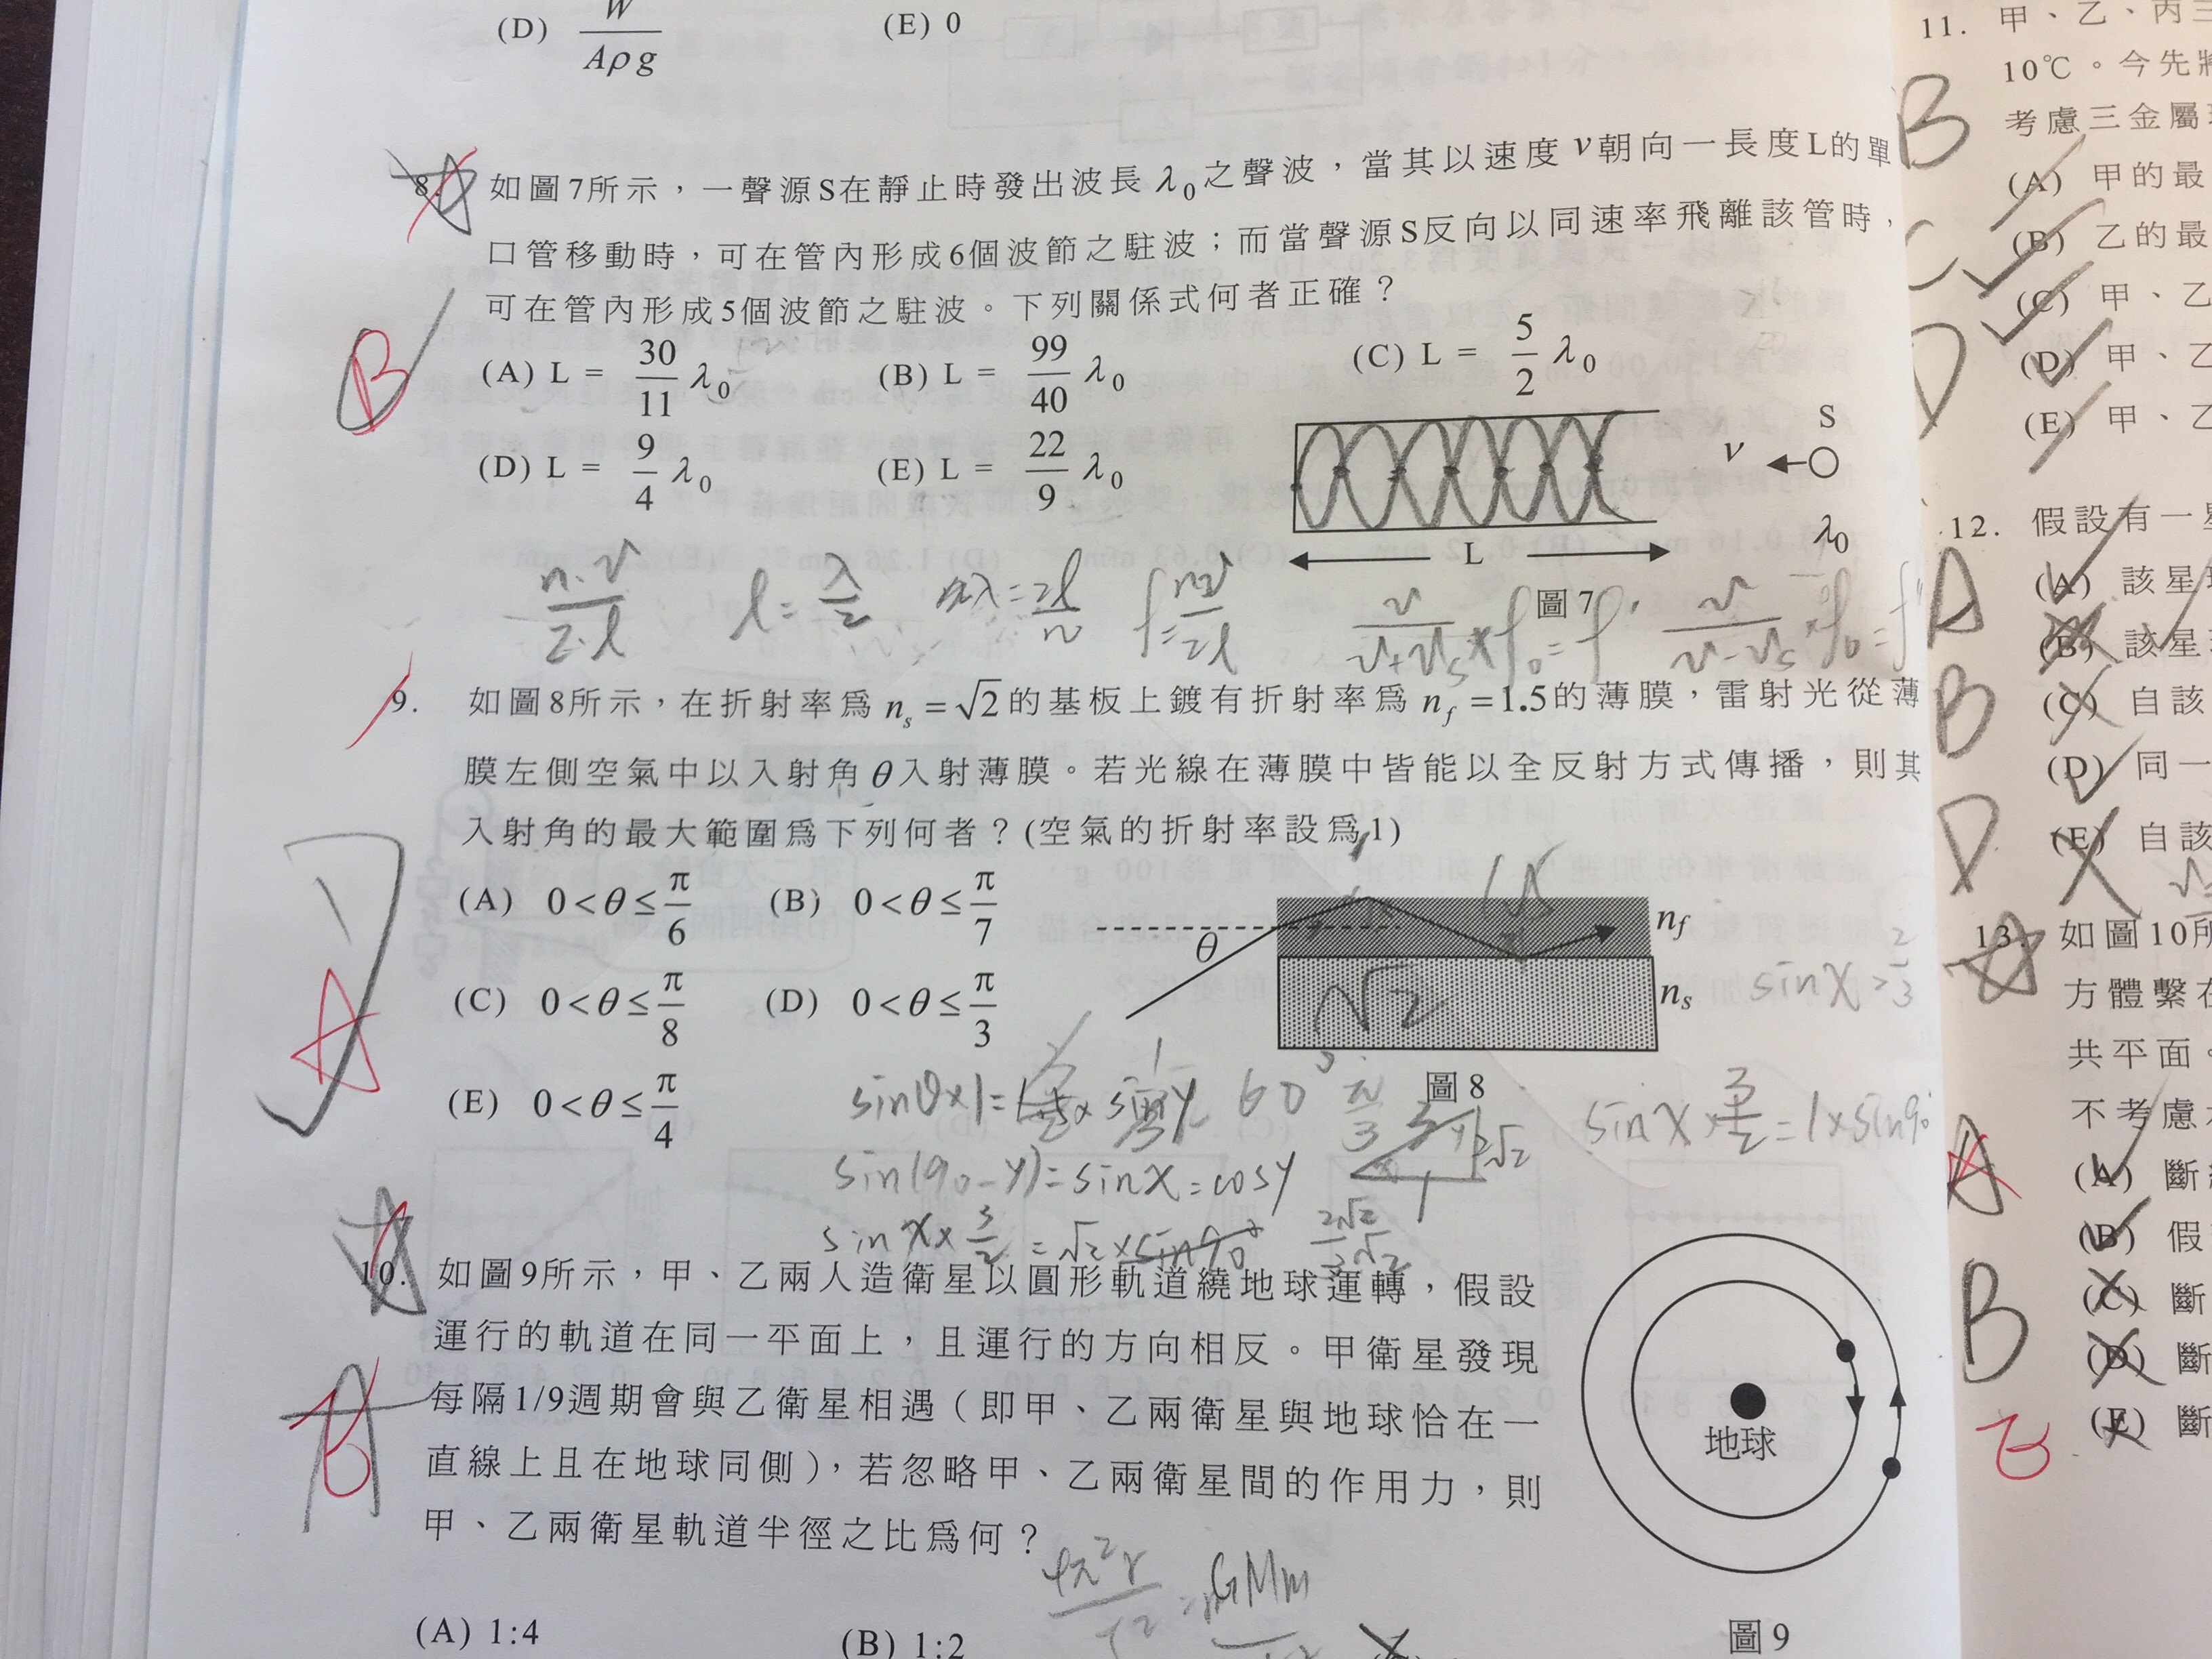 (D) W/Aρg (E) 0
8. 如圖7所示，一聲源S在靜止時發出波長 λ₀之聲波，當其以速度 v朝向一長度L的單
口管移動時，可在管內形成6個波節之駐波；而當聲源S反向以同速率飛離該管時，
可在管內形成5個波節之駐波。下列關係式何者正確？
B
(A) L = 30/11 λ₀ (B) L = 99/40 λ₀ (C) L = 5/2 λ₀
(D) L = 9/4 λ₀ (E) L = 22/9 λ₀
S
v
λ₀
L
圖 7
n·v/2·l l = λ/2 λ = 2l/n f = nv/2l v/v+vₛ × f₀ = f' v/v-vₛ × f₀ = f''
9. 如圖8所示，在折射率爲 nₛ = √2 的基板上鍍有折射率爲 n_f = 1.5的薄膜，雷射光從薄
膜左側空氣中以入射角 θ 入射薄膜。若光線在薄膜中皆能以全反射方式傳播，則其
入射角的最大範圍爲下列何者？(空氣的折射率設爲1)
A
(A) 0 < θ ≤ π/6 (B) 0 < θ ≤ π/7
(C) 0 < θ ≤ π/8 (D) 0 < θ ≤ π/3
(E) 0 < θ ≤ π/4
θ
n_f
nₛ
√2
圖 8
sin x > 2/3
60° π/3
sin x × 3/2 = 1 × sin90°
sin(90-y) = sin x = cos y
sin x × 3/2 = √2 × sin90°
2√2/3
10. 如圖9所示，甲、乙兩人造衛星以圓形軌道繞地球運轉，假設
運行的軌道在同一平面上，且運行的方向相反。甲衛星發現
每隔1/9週期會與乙衛星相遇（即甲、乙兩衛星與地球恰在一
直線上且在地球同側），若忽略甲、乙兩衛星間的作用力，則
甲、乙兩衛星軌道半徑之比爲何？
A
B
地球
圖 9
(A) 1:4 (B) 1:2
11. 甲、乙、丙三
10℃。今先將
考慮三金屬
B
C
D
(A) 甲的最
(B) 乙的最
(C) 甲、乙
(D) 甲、乙
(E) 甲、乙
12. 假設有一星
A
B
D
(A) 該星
(B) 該星
(C) 自該
(D) 同一
(E) 自該
13. 如圖10所
方體繫在
共平面。
不考慮
A
B
(A) 斷
(B) 假
(C) 斷
(D) 斷
(E) 斷